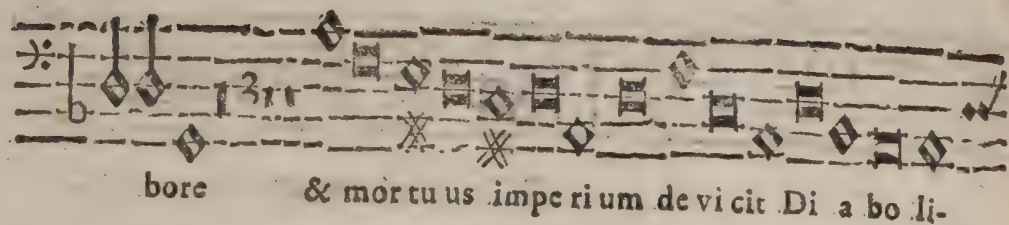 bore & mor tu us impe ri um de vi cit Di a bo li-